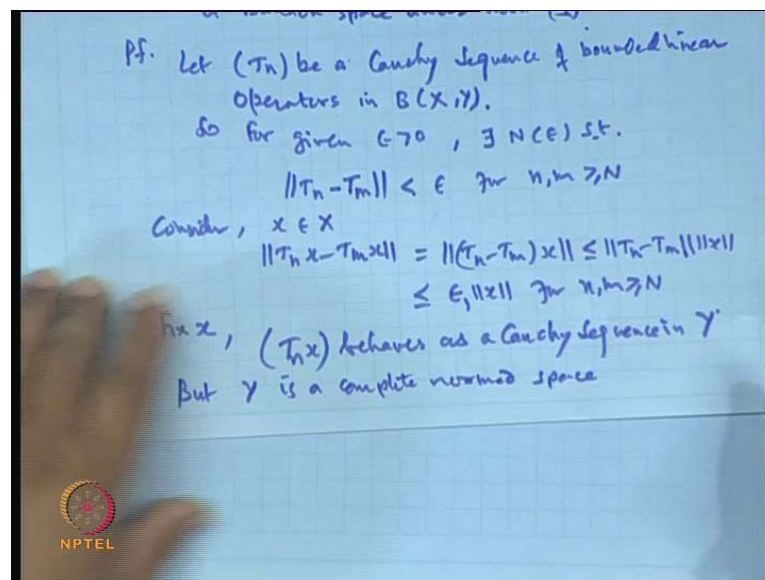 a function space under norm (2)
Pf. Let (Tn) be a Cauchy Sequence of bounded linear
Operators in B(X,Y).
So for given ε>0, ∃ N(ε) s.t.
||Tn - Tm|| < ε for n,m ≥ N
Consider, x ∈ X
||Tn x - Tm x|| = ||(Tn - Tm) x|| ≤ ||Tn - Tm|| ||x||
≤ ε, ||x|| for n,m ≥ N
Fix x, (Tn x) behaves as a Cauchy Sequence in Y.
But Y is a complete normed space
NPTEL